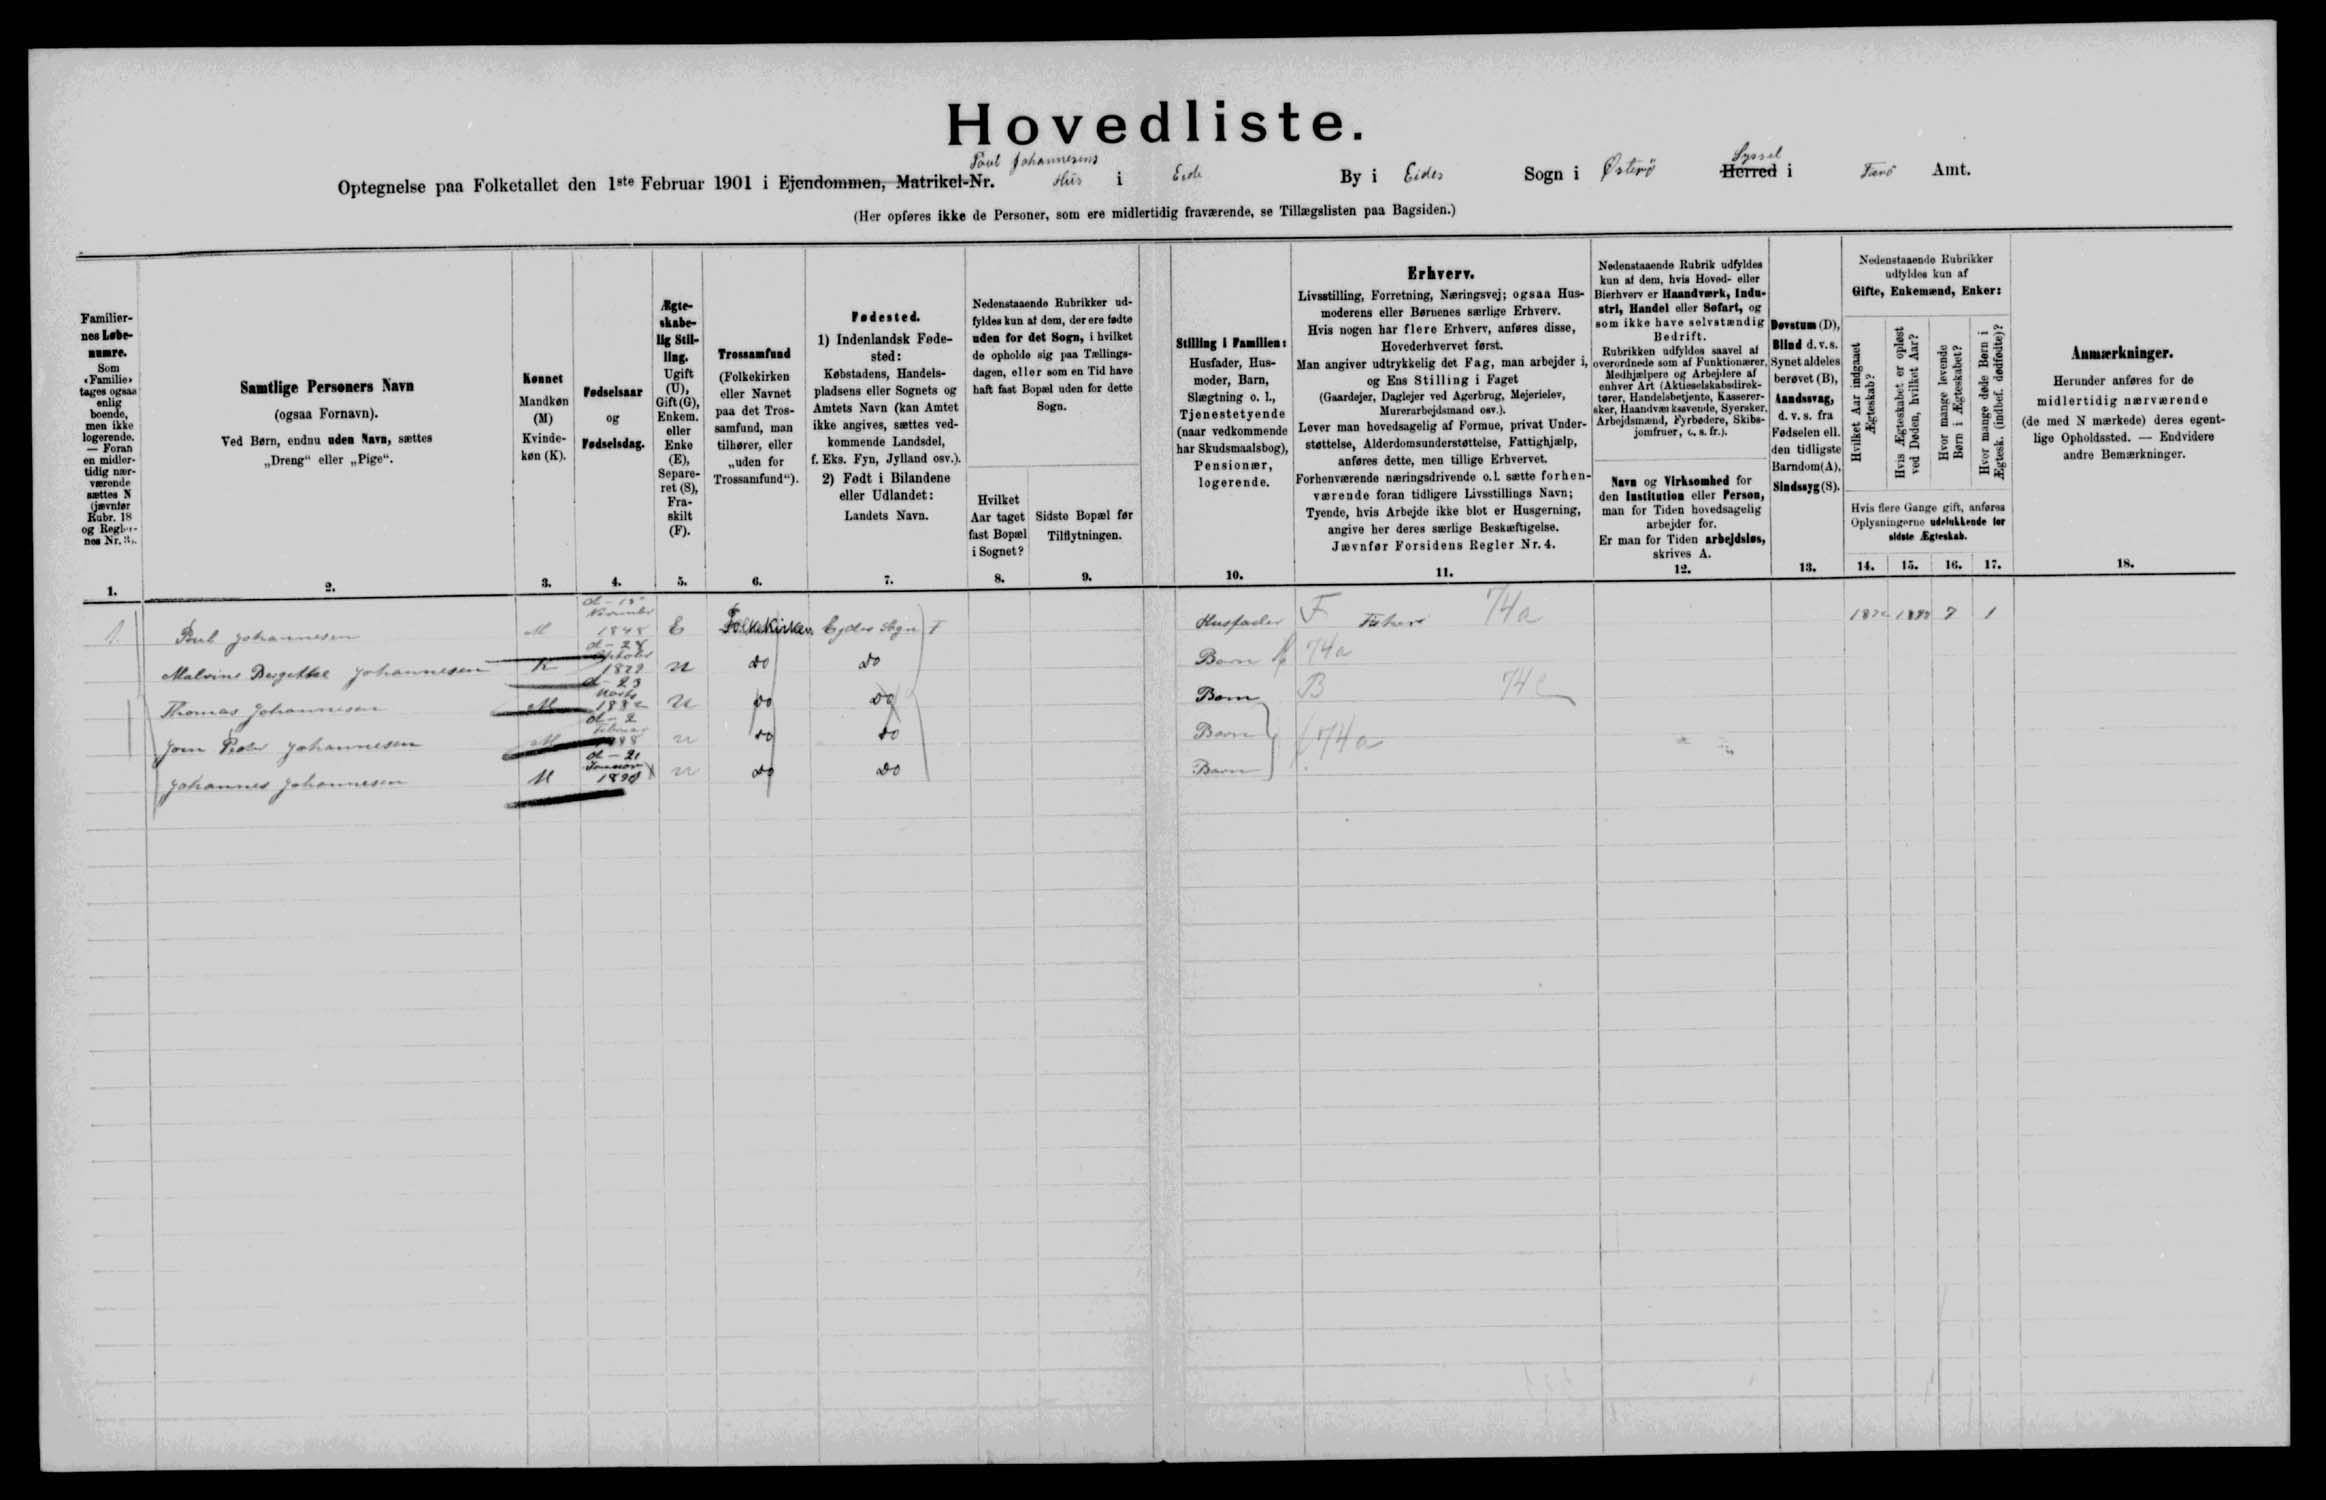 Hovedliste.
Poul Johannesens
Optegnelse paa Folketallet den 1ste Februar 1901 i Ejendommen, Matrikel-Nr. Hus i Eide By i Eides Sogn i Østerø Herred i Færø Amt.
Syssel
(Her opføres ikke de Personer, som ere midlertidig fraværende, se Tillægslisten paa Bagsiden.)
Familiernes Løbenumre.
Som «Familie» tages ogsaa enlig boende, men ikke logerende. — Foran en midlertidig nærværende sættes N (jævnfør Rubr. 18 og Reglernes Nr. 3).
Samtlige Personers Navn
(ogsaa Fornavn).
Ved Børn, endnu uden Navn, sættes
„Dreng“ eller „Pige“.
Kønnet
Mandkøn
(M)
Kvindekøn (K).
Fødselsaar
og
Fødselsdag.
Ægteskabelig Stilling.
Ugift (U), Gift (G), Enkem. eller Enke (E), Separeret (S), Fraskilt (F).
Trossamfund
(Folkekirken eller Navnet paa det Trossamfund, man tilhører, eller „uden for Trossamfund“).
Fødested.
1) Indenlandsk Fødested:
Købstadens, Handelspladsens eller Sognets og Amtets Navn (kan Amtet ikke angives, sættes vedkommende Landsdel, f. Eks. Fyn, Jylland osv.).
2) Født i Bilandene eller Udlandet:
Landets Navn.
Nedenstaaende Rubrikker udfyldes kun af dem, der ere fødte uden for det Sogn, i hvilket de opholde sig paa Tællingsdagen, eller som en Tid have haft fast Bopæl uden for dette Sogn.
Hvilket Aar taget fast Bopæl i Sognet?
Sidste Bopæl før Tilflytningen.
Stilling i Familien:
Husfader, Husmoder, Barn, Slægtning o. l., Tjenestetyende (naar vedkommende har Skudsmaalsbog), Pensionær, logerende.
Erhverv.
Livsstilling, Forretning, Næringsvej; ogsaa Husmoderens eller Børnenes særlige Erhverv.
Hvis nogen har flere Erhverv, anføres disse, Hovederhvervet først.
Man angiver udtrykkelig det Fag, man arbejder i, og Ens Stilling i Faget
(Gaardejer, Daglejer ved Agerbrug, Mejerielev, Murerarbejdsmand osv.).
Lever man hovedsagelig af Formue, privat Understøttelse, Alderdomsunderstøttelse, Fattighjælp, anføres dette, men tillige Erhvervet.
Forhenværende næringsdrivende o. l. sætte forhenværende foran tidligere Livsstillings Navn;
Tyende, hvis Arbejde ikke blot er Husgerning, angive her deres særlige Beskæftigelse.
Jævnfør Forsidens Regler Nr. 4.
Nedenstaaende Rubrik udfyldes kun af dem, hvis Hoved- eller Bierhverv er Haandværk, Industri, Handel eller Søfart, og som ikke have selvstændig Bedrift.
Rubrikken udfyldes saavel af overordnede som af Funktionærer, Medhjælpere og Arbejdere af enhver Art (Aktieselskabsdirektører, Handelsbetjente, Kasserersker, Haandværkssvende, Syersker, Arbejdsmænd, Fyrbødere, Skibsjomfruer, o. s. fr.).
Navn og Virksomhed for den Institution eller Person, man for Tiden hovedsagelig arbejder for.
Er man for Tiden arbejdsløs, skrives A.
Døvstum (D), Blind d. v. s. Synet aldeles berøvet (B), Aandssvag, d. v. s. fra Fødselen ell. den tidligste Barndom (A), Sindssyg (S).
Nedenstaaende Rubrikker udfyldes kun af
Gifte, Enkemænd, Enker:
Hvilket Aar indgaaet Ægteskab?
Hvis Ægteskabet er opløst ved Døden, hvilket Aar?
Hvor mange levende Børn i Ægteskabet?
Hvor mange døde Børn i Ægtesk. (indbef. dødfødte)?
Hvis flere Gange gift, anføres Oplysningerne udelukkende for sidste Ægteskab.
Anmærkninger.
Herunder anføres for de midlertidig nærværende (de med N mærkede) deres egentlige Opholdssted. — Endvidere andre Bemærkninger.
1. 2. 3. 4. 5. 6. 7. 8. 9. 10. 11. 12. 13. 14. 15. 16. 17. 18.
1 Poul Johannesen M November 1848 E Folkekirken Eydes Sogn Husfader F 74a 7 1
Malvine Johannesen K d - 28 1879 U do do Barn 74a
Thomas Johannesen M d - 23 Marts U do do Barn B 74
Johannesen M d - 2 Februar U do do Barn 74a
Johannes Johannesen M d - 21 U do do Barn